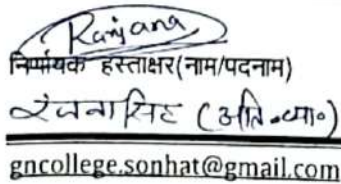 Ranjana
निर्णायक हस्ताक्षर(नाम/पदनाम)
रंजना सिंह (अति॰व्या॰)
gncollege.sonhat@gmail.com